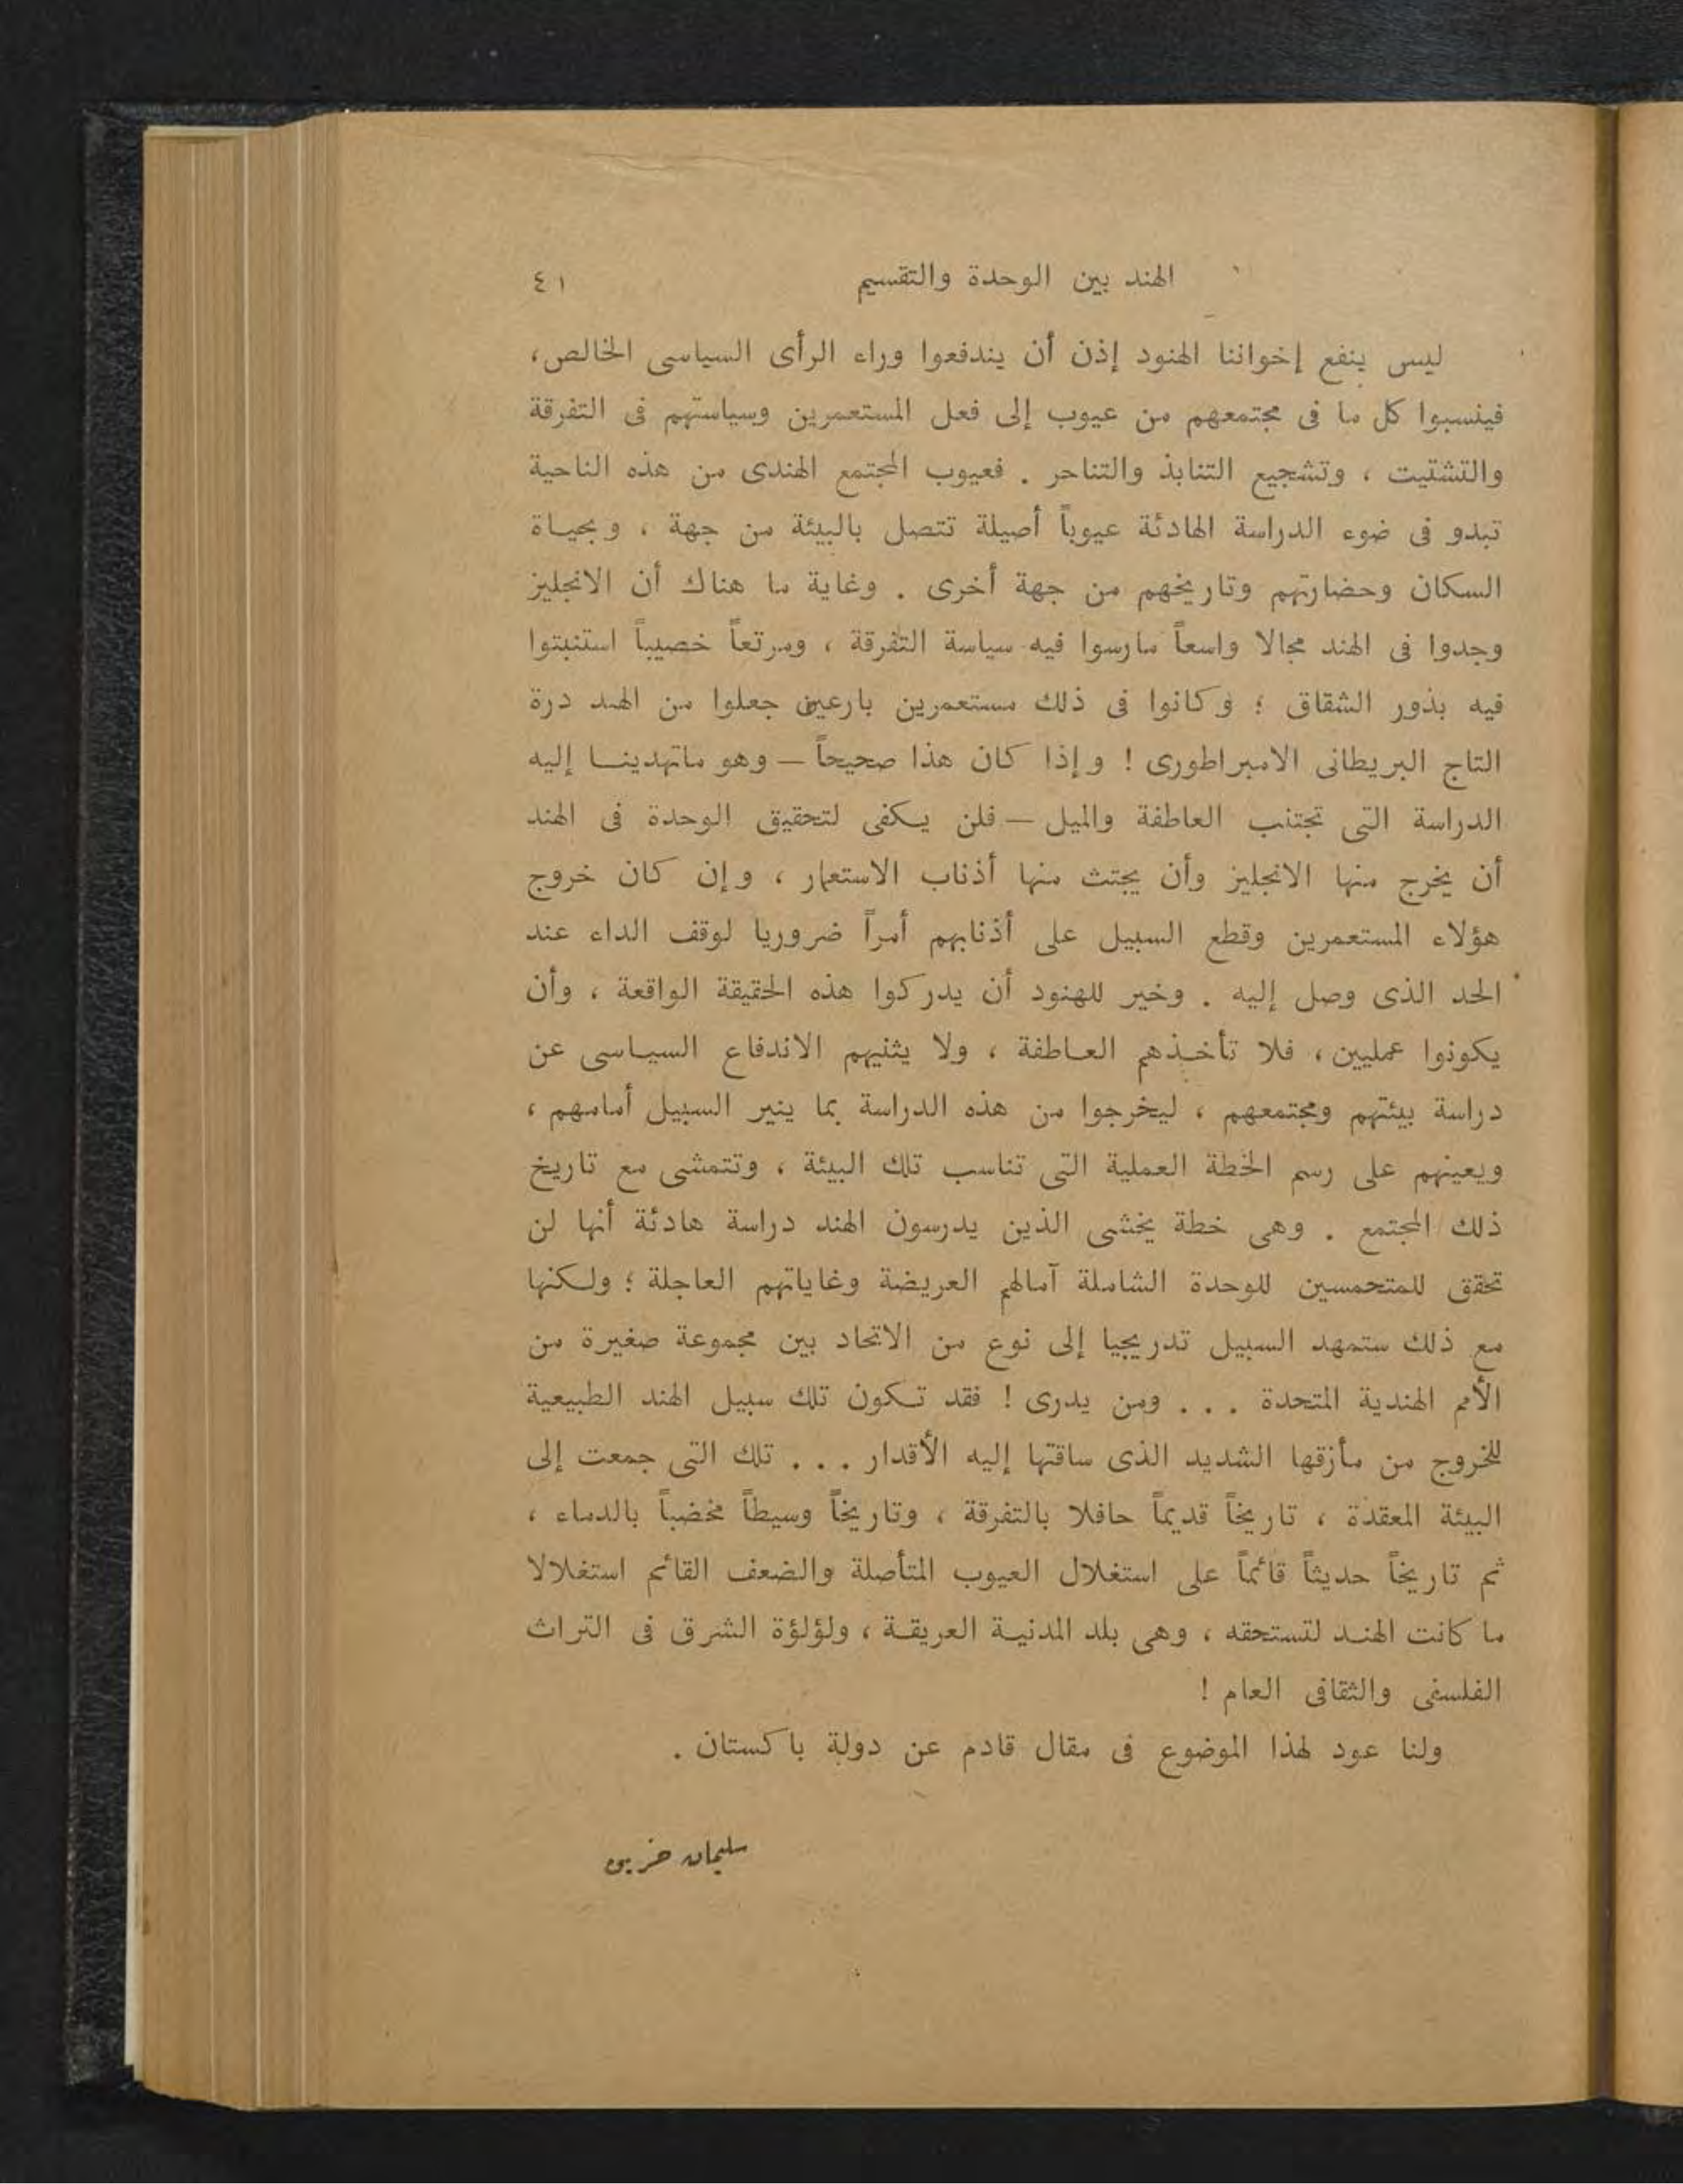 الهند بين الوحدة والتقسيم ٤١
ليس ينفع إخواننا الهنود إذن أن يندفعوا وراء الرأى السياسى الخالص،
فينسبوا كل ما فى مجتمعهم من عيوب إلى فعل المستعمرين وسياستهم فى التفرقة
والتشتيت ، وتشجيع التنابذ والتناحر . فعيوب المجتمع الهندى من هذه الناحية
تبدو فى ضوء الدراسة الهادئة عيوباً أصيلة تتصل بالبيئة من جهة ، وبحياة
السكان وحضارتهم وتاريخهم من جهة أخرى . وغاية ما هناك أن الانجليز
وجدوا فى الهند مجالا واسعاً مارسوا فيه سياسة التفرقة ، ومرتعاً خصيباً استنبتوا
فيه بذور الشقاق ؛ وكانوا فى ذلك مستعمرين بارعين جعلوا من الهند درة
التاج البريطانى الامبراطورى ! وإذا كان هذا صحيحاً — وهو ماتهدينا إليه
الدراسة التى تجتنب العاطفة والميل — فلن يكفى لتحقيق الوحدة فى الهند
أن يخرج منها الانجليز وأن يجتث منها أذناب الاستعمار ، وإن كان خروج
هؤلاء المستعمرين وقطع السبيل على أذنابهم أمراً ضروريا لوقف الداء عند
الحد الذى وصل إليه . وخير للهنود أن يدركوا هذه الحقيقة الواقعة ، وأن
يكونوا عمليين ، فلا تأخذهم العاطفة ، ولا يثنيهم الاندفاع السياسى عن
دراسة بيئتهم ومجتمعهم ، ليخرجوا من هذه الدراسة بما ينير السبيل أمامهم ،
ويعينهم على رسم الخطة العملية التى تناسب تلك البيئة ، وتتمشى مع تاريخ
ذلك المجتمع . وهى خطة يخشى الذين يدرسون الهند دراسة هادئة أنها لن
تحقق للمتحمسين للوحدة الشاملة آمالهم العريضة وغاياتهم العاجلة ؛ ولكنها
مع ذلك ستمهد السبيل تدريجيا إلى نوع من الاتحاد بين مجموعة صغيرة من
الأمم الهندية المتحدة . . . ومن يدرى ! فقد تكون تلك سبيل الهند الطبيعية
للخروج من مأزقها الشديد الذى ساقتها إليه الأقدار . . . تلك التى جمعت إلى
البيئة المعقدة ، تاريخاً قديماً حافلا بالتفرقة ، وتاريخاً وسيطاً مخضباً بالدماء ،
ثم تاريخاً حديثاً قائماً على استغلال العيوب المتأصلة والضعف القائم استغلالا
ما كانت الهند لتستحقه ، وهى بلد المدنية العريقة ، ولؤلؤة الشرق فى التراث
الفلسفى والثقافى العام !
ولنا عود لهذا الموضوع فى مقال قادم عن دولة باكستان .
سليمان حزين